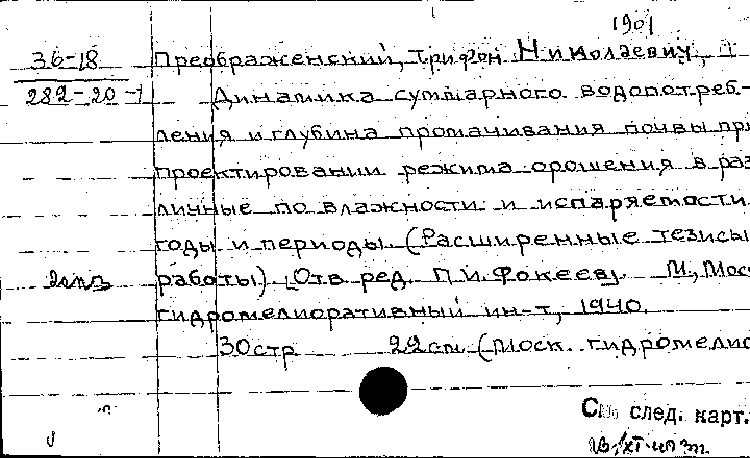 1901
36-18 Преображенский, Трифон Николаевич,
282-20-1 Динамика суммарного водопотреб-
ления и глубина промачивания почвы при
проектировании режима орошения в раз
личные по влажности и испаряемости
годы и периоды. (Расширенные тезисы
2 экз работы). [Отв ред. П.И. Фокеев]. М., Моск
гидромелиоративный ин-т, 1940.
30 стр 22 см. (Моск. гидромелио
См. след. карт.